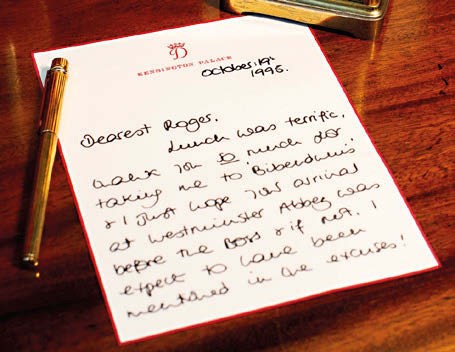 D
KENSINGTON PALACE
October. 19th
1995.
Dearest Roger.
Lunch was terrific,
thank you so much for
taking me to 'Bibendum'
& I just hope your arrival
at Westminster Abbey was
before the Boss & if not. I
expect to have been
mentioned in the excuses!